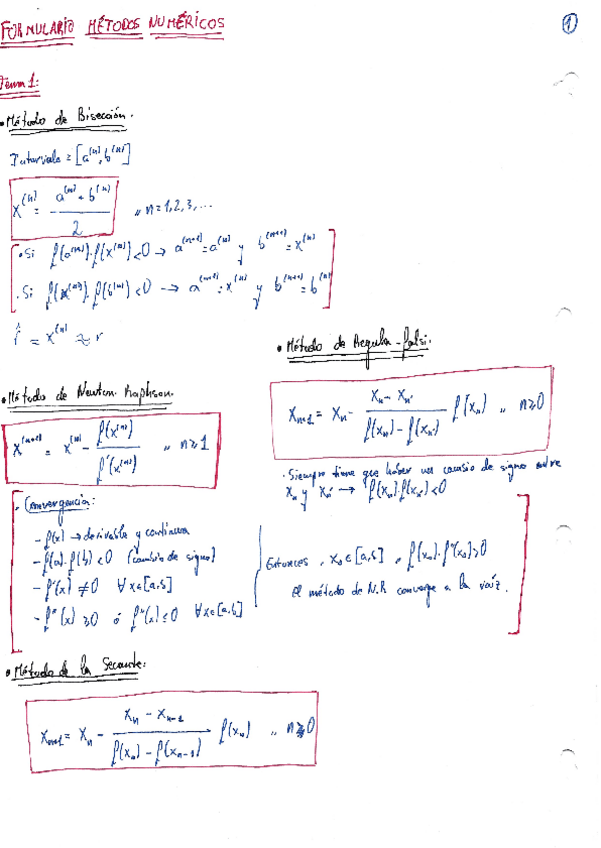 FORMULARIO MÉTODOS NUMÉRICOS
1
Tema 1:
• Método de Bisección.
Intervalo ≡ [a^(n), b^(n)]
x^(n) = (a^(n) + b^(n)) / 2 ,, n = 1, 2, 3, ...
• Si f(a^(n))·f(x^(n)) < 0 → a^(n+1) = a^(n) y b^(n+1) = x^(n)
• Si f(x^(n))·f(b^(n)) < 0 → a^(n+1) = x^(n) y b^(n+1) = b^(n)
r̂ = x^(n) ≈ r
• Método de Regula-falsi.
x_{n+1} = x_n - (x_n - x_n') / (f(x_n) - f(x_n')) f(x_n) ,, n ≥ 0
• Siempre tiene que haber un cambio de signo entre
x_n y x_n' → f(x_n)·f(x_n') < 0
• Método de Newton Raphson.
x^(n+1) = x^(n) - f(x^(n)) / f'(x^(n)) ,, n ≥ 1
• Convergencia:
- f(x) → derivable y continua
- f(a)·f(b) < 0 (cambio de signo)
- f'(x) ≠ 0 ∀x∈[a,b]
- f''(x) ≥ 0 ó f''(x) ≤ 0 ∀x∈[a,b]
Entonces, x₀∈[a,b] ,, f(x₀)·f''(x₀) > 0
El método de N.R converge a la raíz.
• Método de la Secante:
x_{n+1} = x_n - (x_n - x_{n-1}) / (f(x_n) - f(x_{n-1})) f(x_n) ,, n ≥ 0